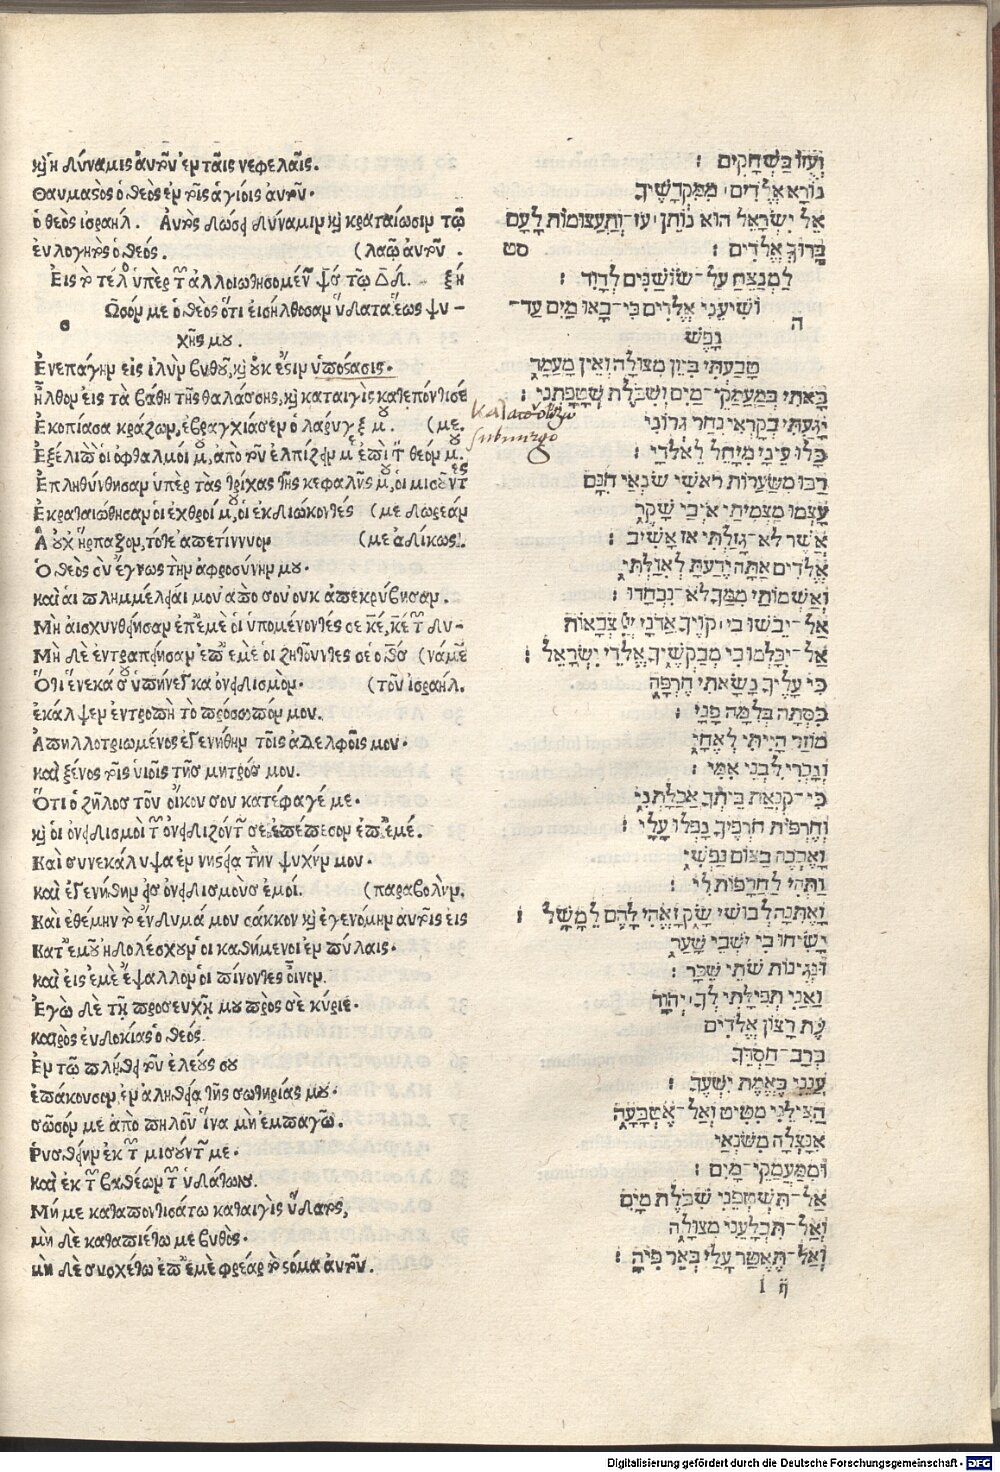 κ̀ ἡ δύναμις ἀυτοῦ ἐν ταῖς νεφελαῖς.
Θαυμαστὸς ὁ θεὸς ἐν τοῖς ἁγίοις ἀυτοῦ.
ὁ θεὸς ισραηλ. Αυτὸς δώσει δύναμιν κ̀ κραταίωσιν τῷ
ἐυλογητὸς ὁ θεός. (λαῷ ἀυτοῦ.
Εις τὸ τέλος ὑπὲρ τῶν ἀλλοιωθησομένων ψαλμὸς τῷ Δαδ. ξη
Ωσόν με ὁ θεὸς ὅτι εισήλθοσαν ὕδατα ἕως ψυ-
χῆς μου.
Ἐνεπάγην εἰς ἰλὺν βυθοῦ, κ̀ ὀυκ ἔστιν ὑπόστασις.
ἦλθον εις τὰ βάθη τῆς θαλάσσης, κ̀ καταιγὶς κατεπόντισέ
Ἐκοπίασα κράζων, ἐβραγχίασεν ὁ λαρυγξ μου. (με.
Ἐξέλιπον οἱ οφθαλμοί μου, ἀπὸ τοῦ ἐλπίζειν με ἐπὶ τὸν θεόν μου.
Ἐπληθύνθησαν ὑπὲρ τὰς τρίχας τῆς κεφαλῆς μου, οἱ μισοῦντες
Ἐκραταιώθησαν οἱ ἐχθροί μου, οἱ ἐκδιώκοντές (με δωρεάν
Ἃ ὀυχ ἥρπαζον, τότε ἀπετίννυον (με ἀδίκως.
Ὁ θεὸς συ ἔγνως τὴν ἀφροσύνην μου.
καὶ αι πλημμέλειαί μου ἀπὸ σοῦ ουκ ἀπεκρύβησαν.
Μὴ αισχυνθείησαν ἐπ' ἐμὲ ὁι ὑπομένοντές σε κε̄, κε̄ τῶν δυ-
Μὴ δὲ ἐντραπείησαν ἐπ' ἐμὲ ὁι ζητοῦντές σε ὁ θς̄ (νάμεων
Ὅτι ἕνεκά σου ὑπήνεγκα ὀνειδισμὸν. (τοῦ ισραήλ.
ἐκάλυψεν ἐντροπὴ τὸ πρόσωπόν μου.
Απηλλοτριωμένος ἐγενήθην τοῖς ἀδελφοῖς μου.
καὶ ξένος τοῖς υἱοῖς τῆς μητρός μου.
Ὅτι ὁ ζῆλος τοῦ οἴκου σου κατέφαγέ με.
κ̀ ὁι ὀνειδισμοὶ τῶν ὀνειδιζόντων σε ἐπέπεσον ἐπ' ἐμέ.
Καὶ συνεκάλυψα ἐν νηστεία τὴν ψυχήν μου.
καὶ ἐγενήθην εις ὀνειδισμοὺς ἐμοί. (παραβολὴν.
Καὶ ἐθέμην τὸ ἔνδυμά μου σάκκον κ̀ ἐγενόμην ἀυτοῖς εις
Κατ' ἐμοῦ ἠδολέσχουν οἱ καθήμενοι ἐν πύλαις.
καὶ εἰς ἐμὲ ἔψαλλον οἱ πίνοντες οἶνον.
Ἐγὼ δὲ τῇ προσευχῇ μου πρὸς σὲ κύριε.
καιρὸς ἐυδοκίας ὁ θεός.
Ἐν τῷ πλήθει τοῦ ἐλέους σου
ἐπάκουσον, ἐν ἀληθεία τῆς σωτηρίας μου.
σῶσόν με ἀπὸ πηλοῦ ἵνα μὴ ἐμπαγῶ.
Ρυσθείην ἐκ τῶν μισούντων με.
καὶ ἐκ τῶν βαθέων τῶν ὑδάτων.
Μή με καταποντισάτω καταιγὶς ὕδατος,
μὴ δὲ καταπιέτω με βυθός.
μὴ δὲ συσχέτω ἐπ' ἐμὲ φρέαρ τὸ στόμα ἀυτοῦ.
καταποντίζω
submergo
וְעֻזּוֹ בַּשְּׁחָקִים :
נוֹרָא אֱלֹדִים מִמִּקְדָּשֶׁיךָ
אֵל יִשְׂרָאֵל הוּא נוֹתֵן עֹז־וְתַעֲצֻמוֹת לָעָם
בָּרוּךְ אֱלֹדִים : סט
לַמְנַצֵּחַ עַל־שׁוֹשַׁנִּים לְדָוִד :
וֹשִׁיעֵנִי אֱלֹדִים כִּי־בָאוּ מַיִם עַד־
ה
נָפֶשׁ
טָבַעְתִּי בִּיוֵן מְצוּלָה וְאֵין מָעֳמָד
בָּאתִי בְמַעֲמַקֵּי־מַיִם וְשִׁבֹּלֶת שְׁטָפָתְנִי :
יָגַעְתִּי בְקָרְאִי נִחַר גְּרוֹנִי
כָּלוּ עֵינַי מְיַחֵל לֵאלֹדָי :
רַבּוּ מִשַּׂעֲרוֹת רֹאשִׁי שֹׂנְאַי חִנָּם
עָצְמוּ מַצְמִיתַי אֹיְבַי שֶׁקֶר
אֲשֶׁר לֹא־גָזַלְתִּי אָז אָשִׁיב :
אֱלֹדִים אַתָּה יָדַעְתָּ לְאִוַּלְתִּי
וְאַשְׁמוֹתַי מִמְּךָ לֹא־נִכְחָדוּ :
אַל־יֵבֹשׁוּ בִי קוֶֹיךָ אֲדֹנָי יְיָ צְבָאוֹת
אַל־יִכָּלְמוּ בִי מְבַקְשֶׁיךָ אֱלֹדֵי יִשְׂרָאֵל :
כִּי עָלֶיךָ נָשָׂאתִי חֶרְפָּה
כִּסְּתָה כְלִמָּה פָנָי :
מוּזָר הָיִיתִי לְאֶחָי
וְנָכְרִי לִבְנֵי אִמִּי :
כִּי־קִנְאַת בֵּיתְךָ אֲכָלָתְנִי
וְחֶרְפּוֹת חוֹרְפֶיךָ נָפְלוּ עָלָי :
וָאֶבְכֶּה בַצּוֹם נַפְשִׁי
וַתְּהִי לַחֲרָפוֹת לִי :
וָאֶתְּנָה לְבוּשִׁי שָׂק וָאֱהִי לָהֶם לְמָשָׁל :
יָשִׂיחוּ בִי יֹשְׁבֵי שָׁעַר
וּנְגִינוֹת שֹׁתֵי שֵׁכָר :
וַאֲנִי תְפִילָּתִי לְךָ יְהוָֹה
עֵת רָצוֹן אֱלֹדִים
בְּרָב־חַסְדֶּךָ
עֲנֵנִי בֶּאֱמֶת יִשְׁעֶךָ :
הַצִּילֵנִי מִטִּיט וְאַל־אֶטְבָּעָה
אִנָּצְלָה מִשֹּׂנְאַי
וּמִמַּעֲמַקֵּי־מָיִם :
אַל־תִּשְׁטְפֵנִי שִׁבֹּלֶת מַיִם
וְאַל־תִּבְלָעֵנִי מְצוּלָה
וְאַל־תֶּאְטַר עָלַי בְּאֵר פִּיהָ :
Digitalisierung gefördert durch die Deutsche Forschungsgemeinschaft - DFG